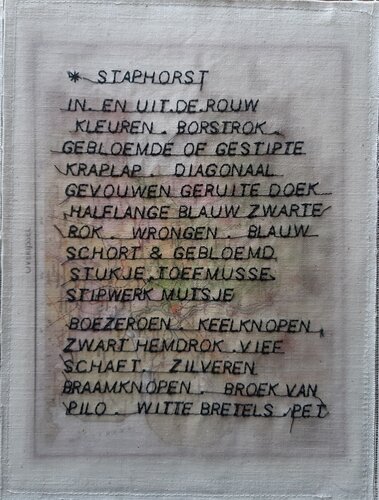 * STAPHORST
IN EN UIT.DE.ROUW
KLEUREN. BORSTROK.
GEBLOEMDE OF GESTIPTE
KRAPLAP. DIAGONAAL
GEVOUWEN GERUITE DOEK
HALFLANGE BLAUW ZWARTE
ROK WRONGEN. BLAUW
SCHORT & GEBLOEMD
STUKJE.TOEFMUSSE.
STIPWERK MUTSJE
BOEZEROEN KEELKNOPEN,
ZWART HEMDROK.VIEF
SCHAFT. ZILVEREN
BRAAMKNOPEN. BROEK VAN
PILO. WITTE BRETELS.PET